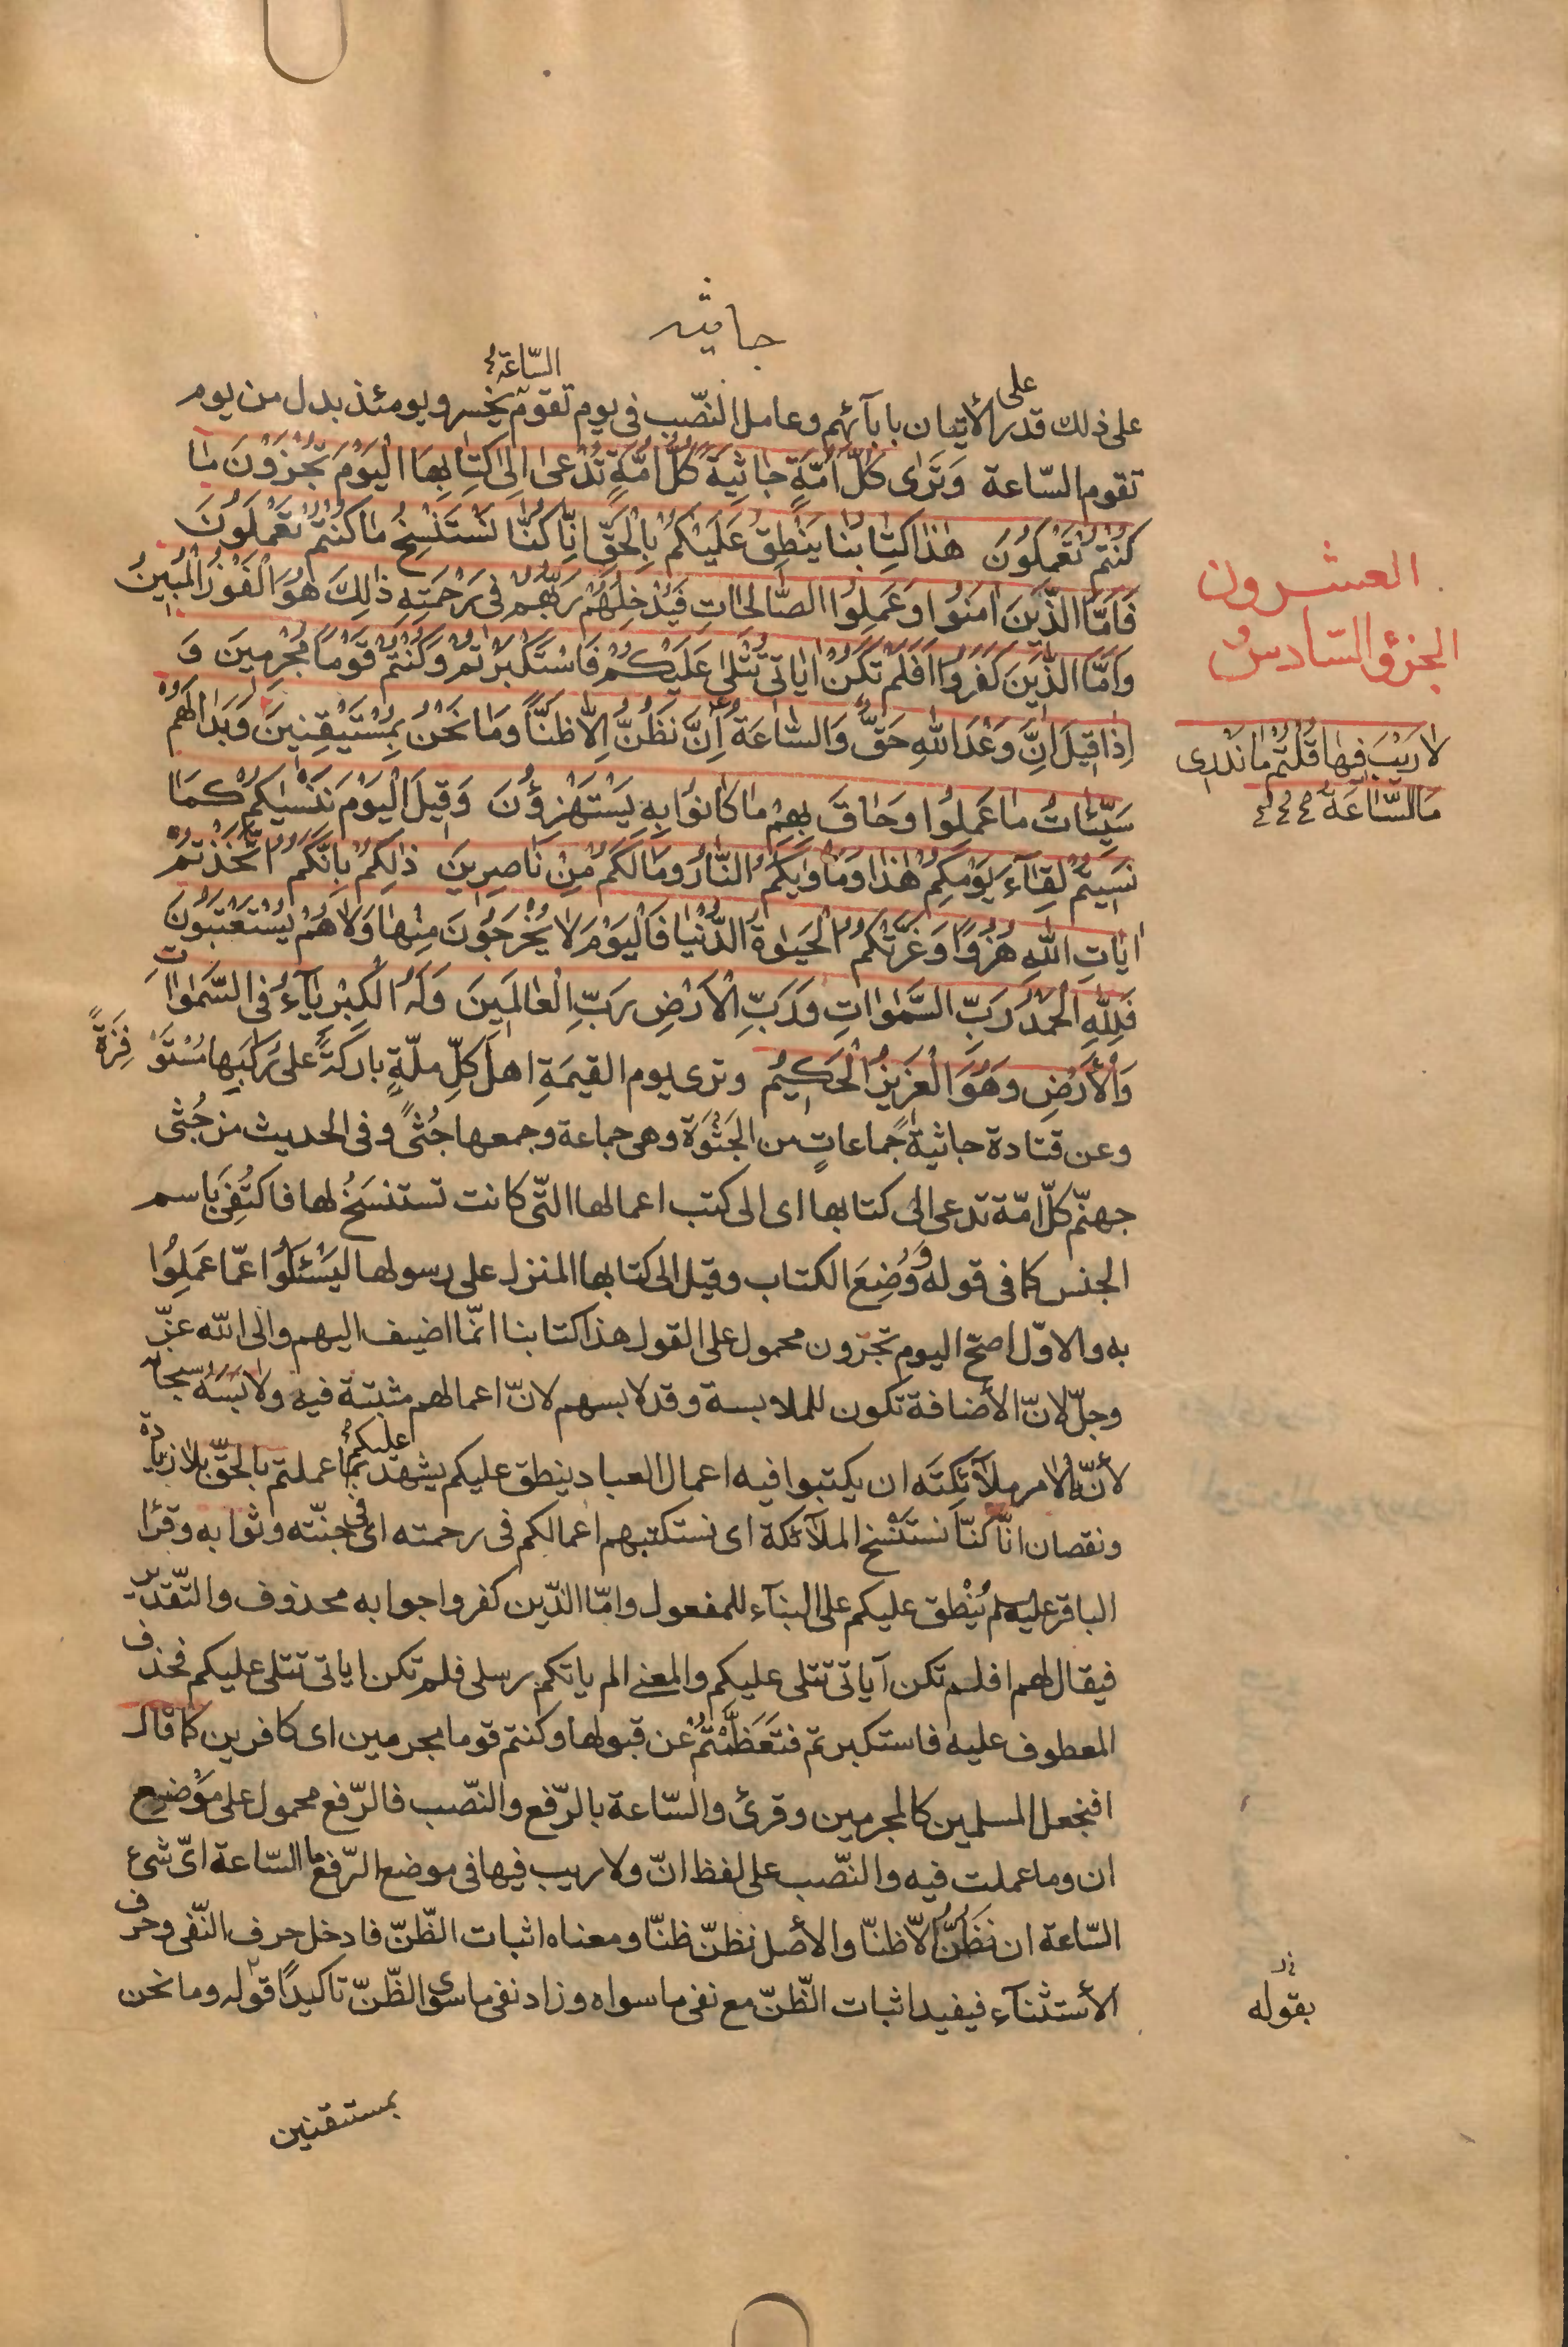 جاثيه
على ذلك قدر على الأتيان بابآئهم وعامل النّصب فى يوم تقوم السّاعة يخسر ويومئذ بدل من يوم
تقوم السّاعة وَتَرٰى كُلَّ اُمَّةٍ جٰاثِيَةً كُلُّ اُمَّةٍ تُدْعىٰ اِلىٰ كِتٰابِهَا اَلْيَوْمَ تُجْزَوْنَ مٰا
كُنْتُمْ تَعْمَلُونَ هٰذٰا كِتٰابُنٰا يَنْطِقُ عَلَيْكُمْ بِالْحَقِّ اِنّٰا كُنّٰا نَسْتَنْسِخُ مٰا كُنْتُمْ تَعْمَلُونَ
فَاَمَّا الَّذِينَ اٰمَنُوا وَعَمِلُوا الصّٰالِحٰاتِ فَيُدْخِلُهُمْ رَبُّهُمْ فِى رَحْمَتِهِ ذٰلِكَ هُوَ الْفَوْزُ الْمُبِينُ
وَاَمَّا الَّذِينَ كَفَرُوا اَفَلَمْ تَكُنْ اٰيٰاتِى تُتْلىٰ عَلَيْكُمْ فَاسْتَكْبَرْتُمْ وَكُنْتُمْ قَوْماً مُجْرِمِينَ وَ
اِذٰا قِيلَ اِنَّ وَعْدَ اللّٰهِ حَقٌّ وَالسّٰاعَةُ اِنْ نَظُنُّ اِلّٰا ظَنّاً وَمٰا نَحْنُ بِمُسْتَيْقِنِينَ وَبَدٰا لَهُمْ
سَيِّئٰاتُ مٰا عَمِلُوا وَحٰاقَ بِهِمْ مٰا كٰانُوا بِهِ يَسْتَهْزِؤُنَ وَقِيلَ الْيَوْمَ نَنْسٰيكُمْ كَمٰا
نَسِيتُمْ لِقٰآءَ يَوْمِكُمْ هٰذٰا وَمَأْوٰيكُمُ النّٰارُ وَمٰا لَكُمْ مِنْ نٰاصِرِينَ ذٰلِكُمْ بِاَنَّكُمُ اتَّخَذْتُمْ
اٰيٰاتِ اللّٰهِ هُزُوًا وَغَرَّتْكُمُ الْحَيٰوةُ الدُّنْيٰا فَالْيَوْمَ لٰا يُخْرَجُونَ مِنْهٰا وَلٰا هُمْ يُسْتَعْتَبُونَ
فَلِلّٰهِ الْحَمْدُ رَبِّ السَّمٰوٰاتِ وَرَبِّ الْاَرْضِ رَبِّ الْعٰالَمِينَ وَلَهُ الْكِبْرِيٰآءُ فِى السَّمٰوٰاتِ
وَالْأَرْضِ وَهُوَ الْعَزِيزُ الْحَكِيمُ وترى يوم القيمَةِ اهلَ كلِّ ملّةٍ باركةً على رُكَبِها مُسْتَوْفِزَةً
وعن قتادة جاثيةً جماعاتٍ من الجَثْوَة وهى جماعة وجمعها جُثىً وفى الحديث من جُثَى
جهنّم كلّ امّة تدعى الى كتابها اى الى كتب اعمالها التّى كانت تستنسَخُ لها فاكتُفِىَ باسم
الجنس كما فى قوله وَوُضِعَ الكتاب وقيل الى كتابها المنزل على رسولها ليَسْئَلُوا عمّا عَمِلُوا
به والاوّل اصحّ اليوم تجزون محمول على القول هذا كتابنا انّما اضيف اليهم والى الله عزّ
وجلّ لانّ الأضافة تكون للملابسة وقد لابسهم لانّ اعمالهم مثبتة فيه ولابَسَهُ سبحانه
لأنّه الامر ملآئكتَه ان يكتبوا فيه اعمال العباد ينطق عليكم يشهد عليكم بما عملتم بالحقّ بلا زيادة
ونقصان انّا كنّا نستَنْسِخ الملآئكة اى نستكتبهم اعمالكم فى رحمته اى فى جنّته وثوابه وقرَا
الباقر عليه لم يُنْطَق عليكم على البنآء للمفعول وامّا الذّين كفروا جوابه محذوف والتّقدير
فيقال لهم افلم تكن آياتى تتلى عليكم والمعنى الم ياتكم رسلى فلم تكن اياتى تتلى عليكم فحذف
المعطوف عليه فاستكبرتم فتَعَظَّمْتُمْ عن قبولها وكنتم قوما مجرمين اى كافرين كما قال
افنجعل المسلمين كالمجرمين وقرئ والسّاعة بالرّفع والنّصب فالرّفع محمول على مَوْضِع
ان وما عملت فيه والنّصب على لفظ انّ ولا ريب فيها فى موضع الرّفع ما السّاعة اىّ شئ
السّاعة ان نَظُنُّ الّا ظنّا والأصل نظنّ ظنّا ومعناه اثبات الظّنّ فادخل حرف النّفى وحرف
الأستثنآء فيفيد اثبات الظّنّ مع نفى ما سواه وزاد نفى ما سوى الظّنّ تاكيدًا قوله وما نحن
بمستيقنين
العشرون
الجزؤ السّادس و
لٰا رَيْبَ فِيهٰا قُلْتُمْ مٰا نَدْرِى
مَا السّٰاعَةُ
بقوله